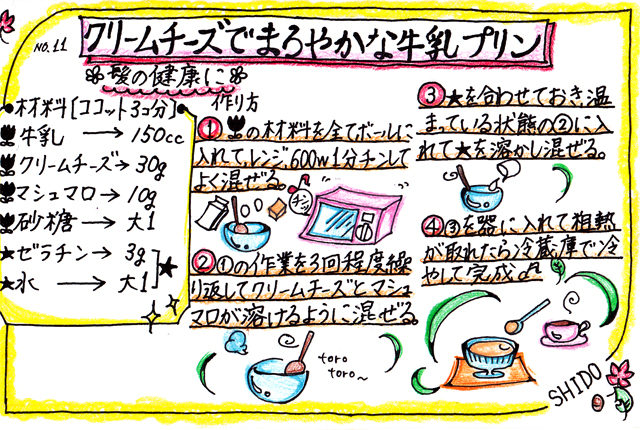 NO.11
クリームチーズでまろやかな牛乳プリン
髪の健康に
材料[ココット3コ分]
牛乳 → 150cc
クリームチーズ→ 30g
マシュマロ→ 10g
砂糖 → 大1
★ゼラチン→ 3g
★水 → 大1
★
作り方
①の材料を全てボールに
入れて、レンジ600w1分チンして
よく混ぜる。
チン
②①の作業を3回程度繰
り返してクリームチーズとマシュ
マロが溶けるように混ぜる。
toro
toro~
③★を合わせておき温
まっている状態の②に入
れて★を溶かし混ぜる。
④③を器に入れて粗熱
が取れたら冷蔵庫で冷
やして完成♪
SHIDO